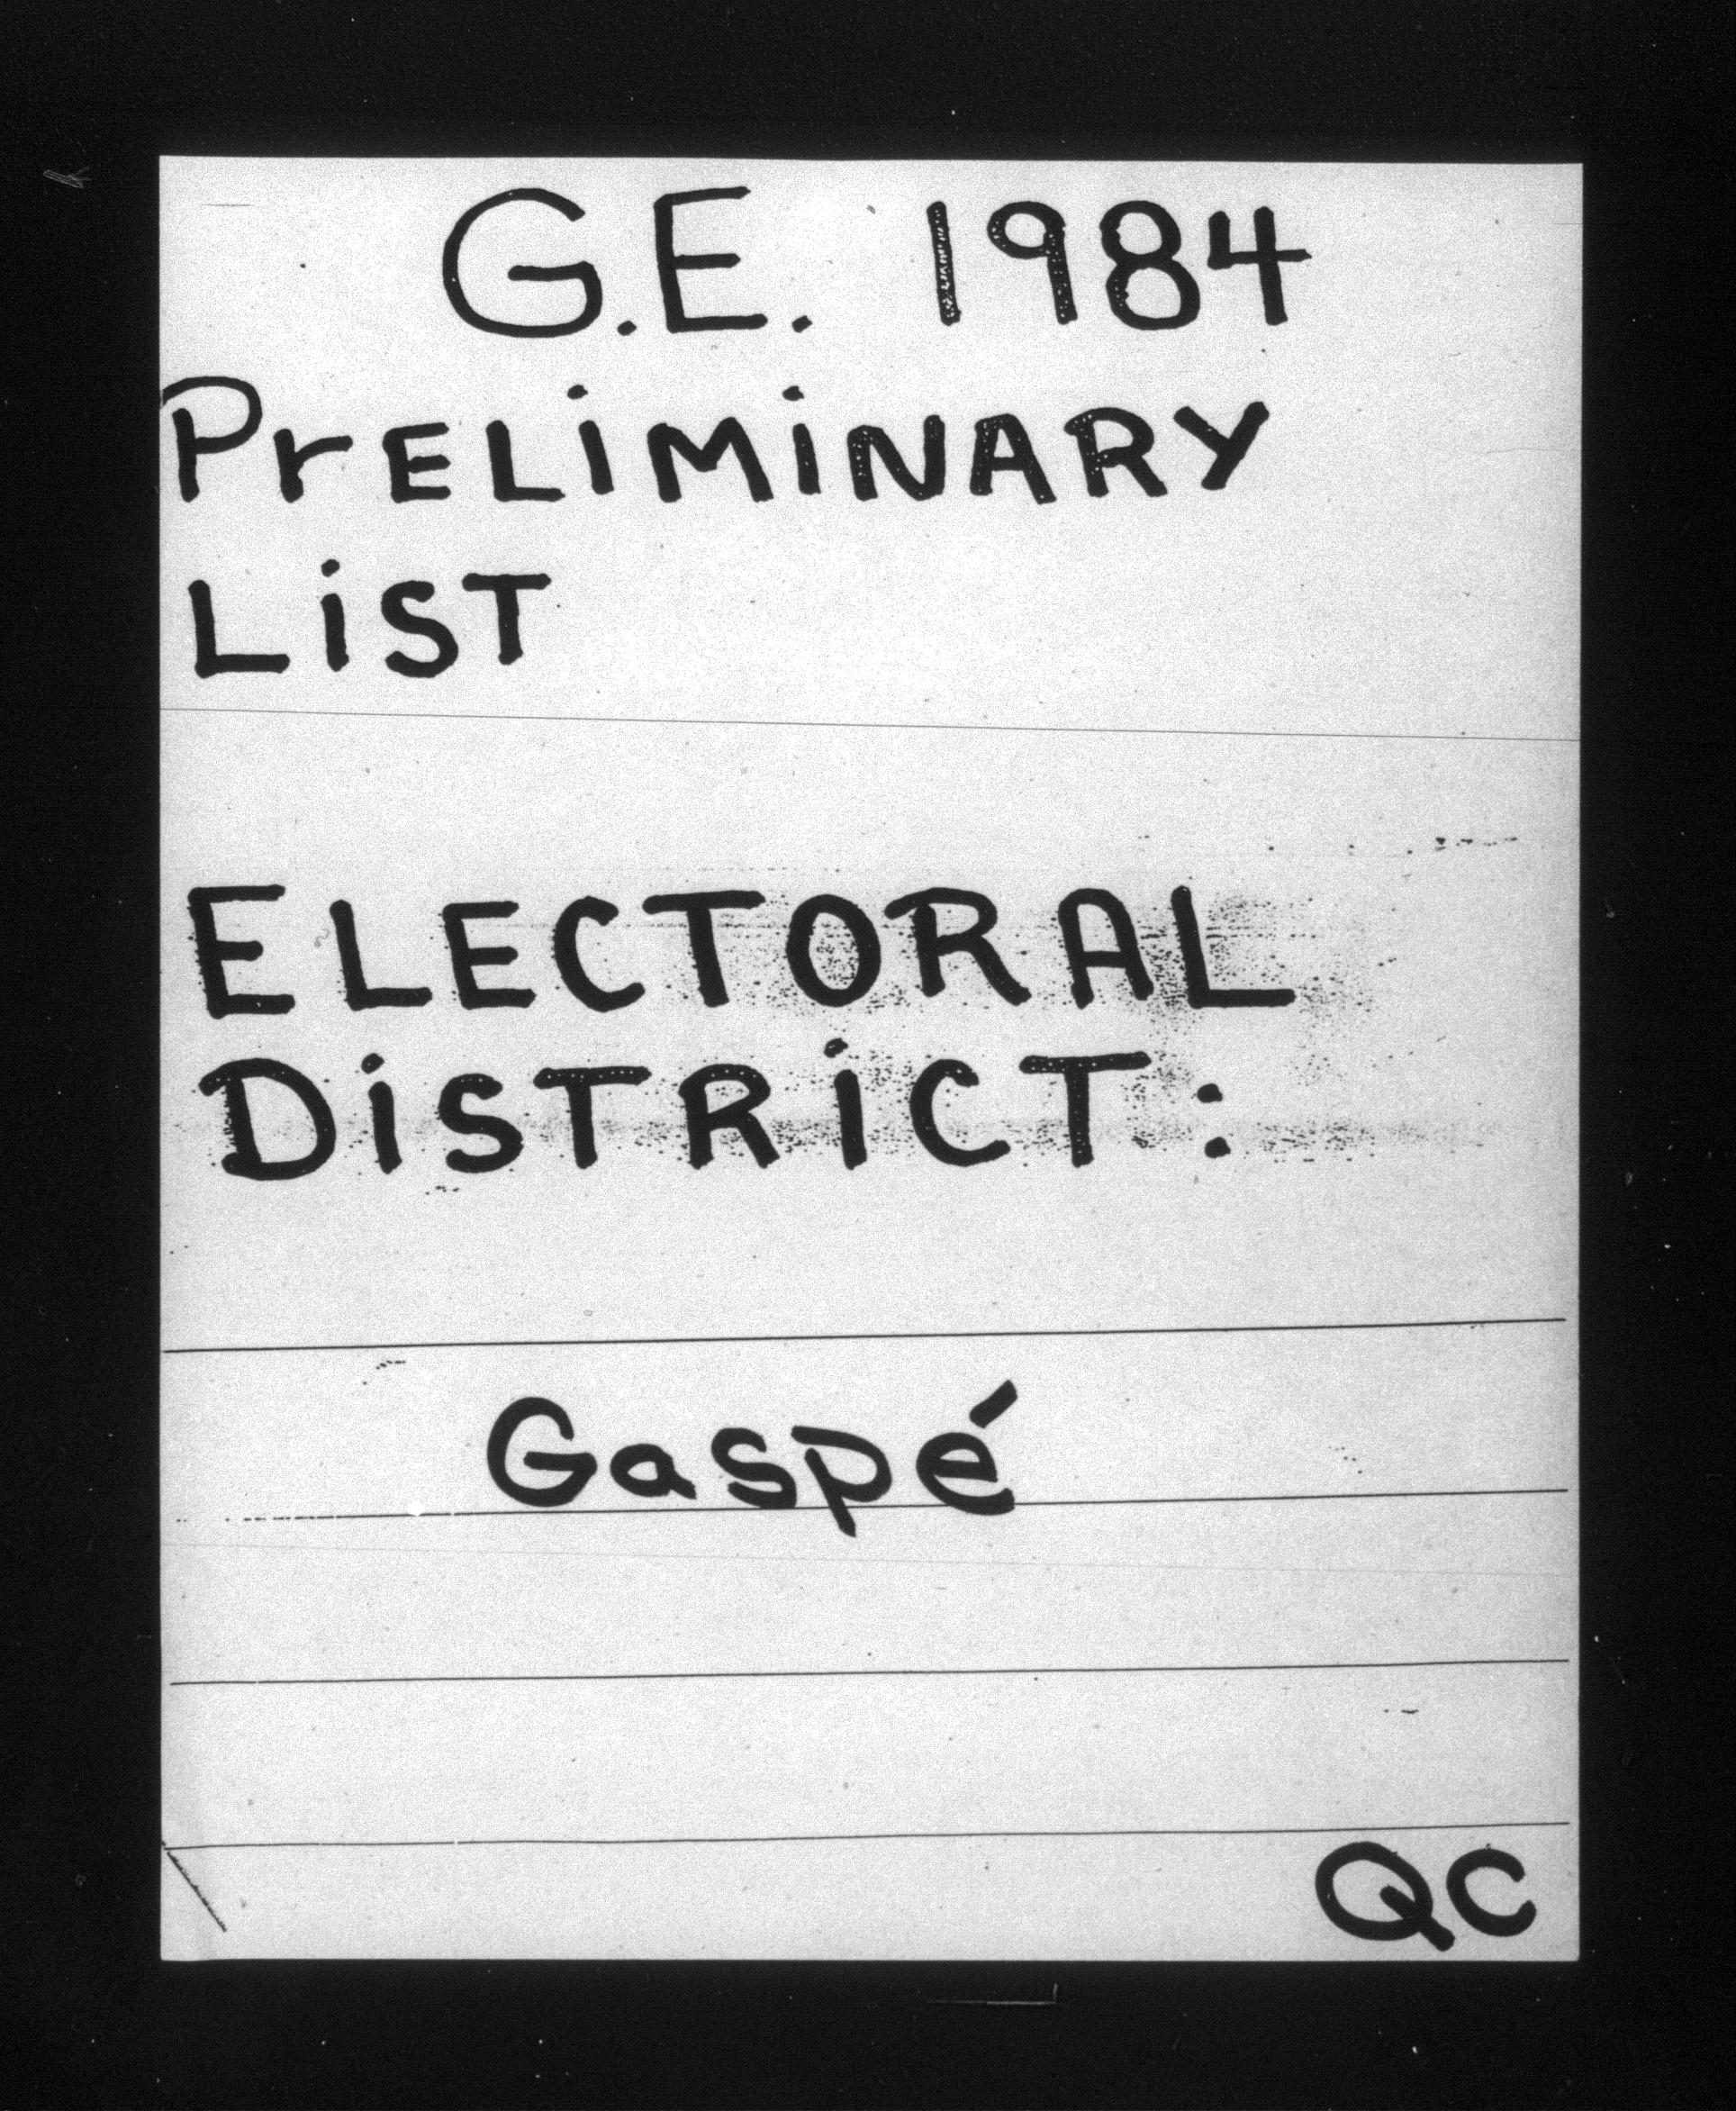 G.E. 1984
PRELIMINARY
LIST
ELECTORAL
DISTRICT:
Gaspé
QC